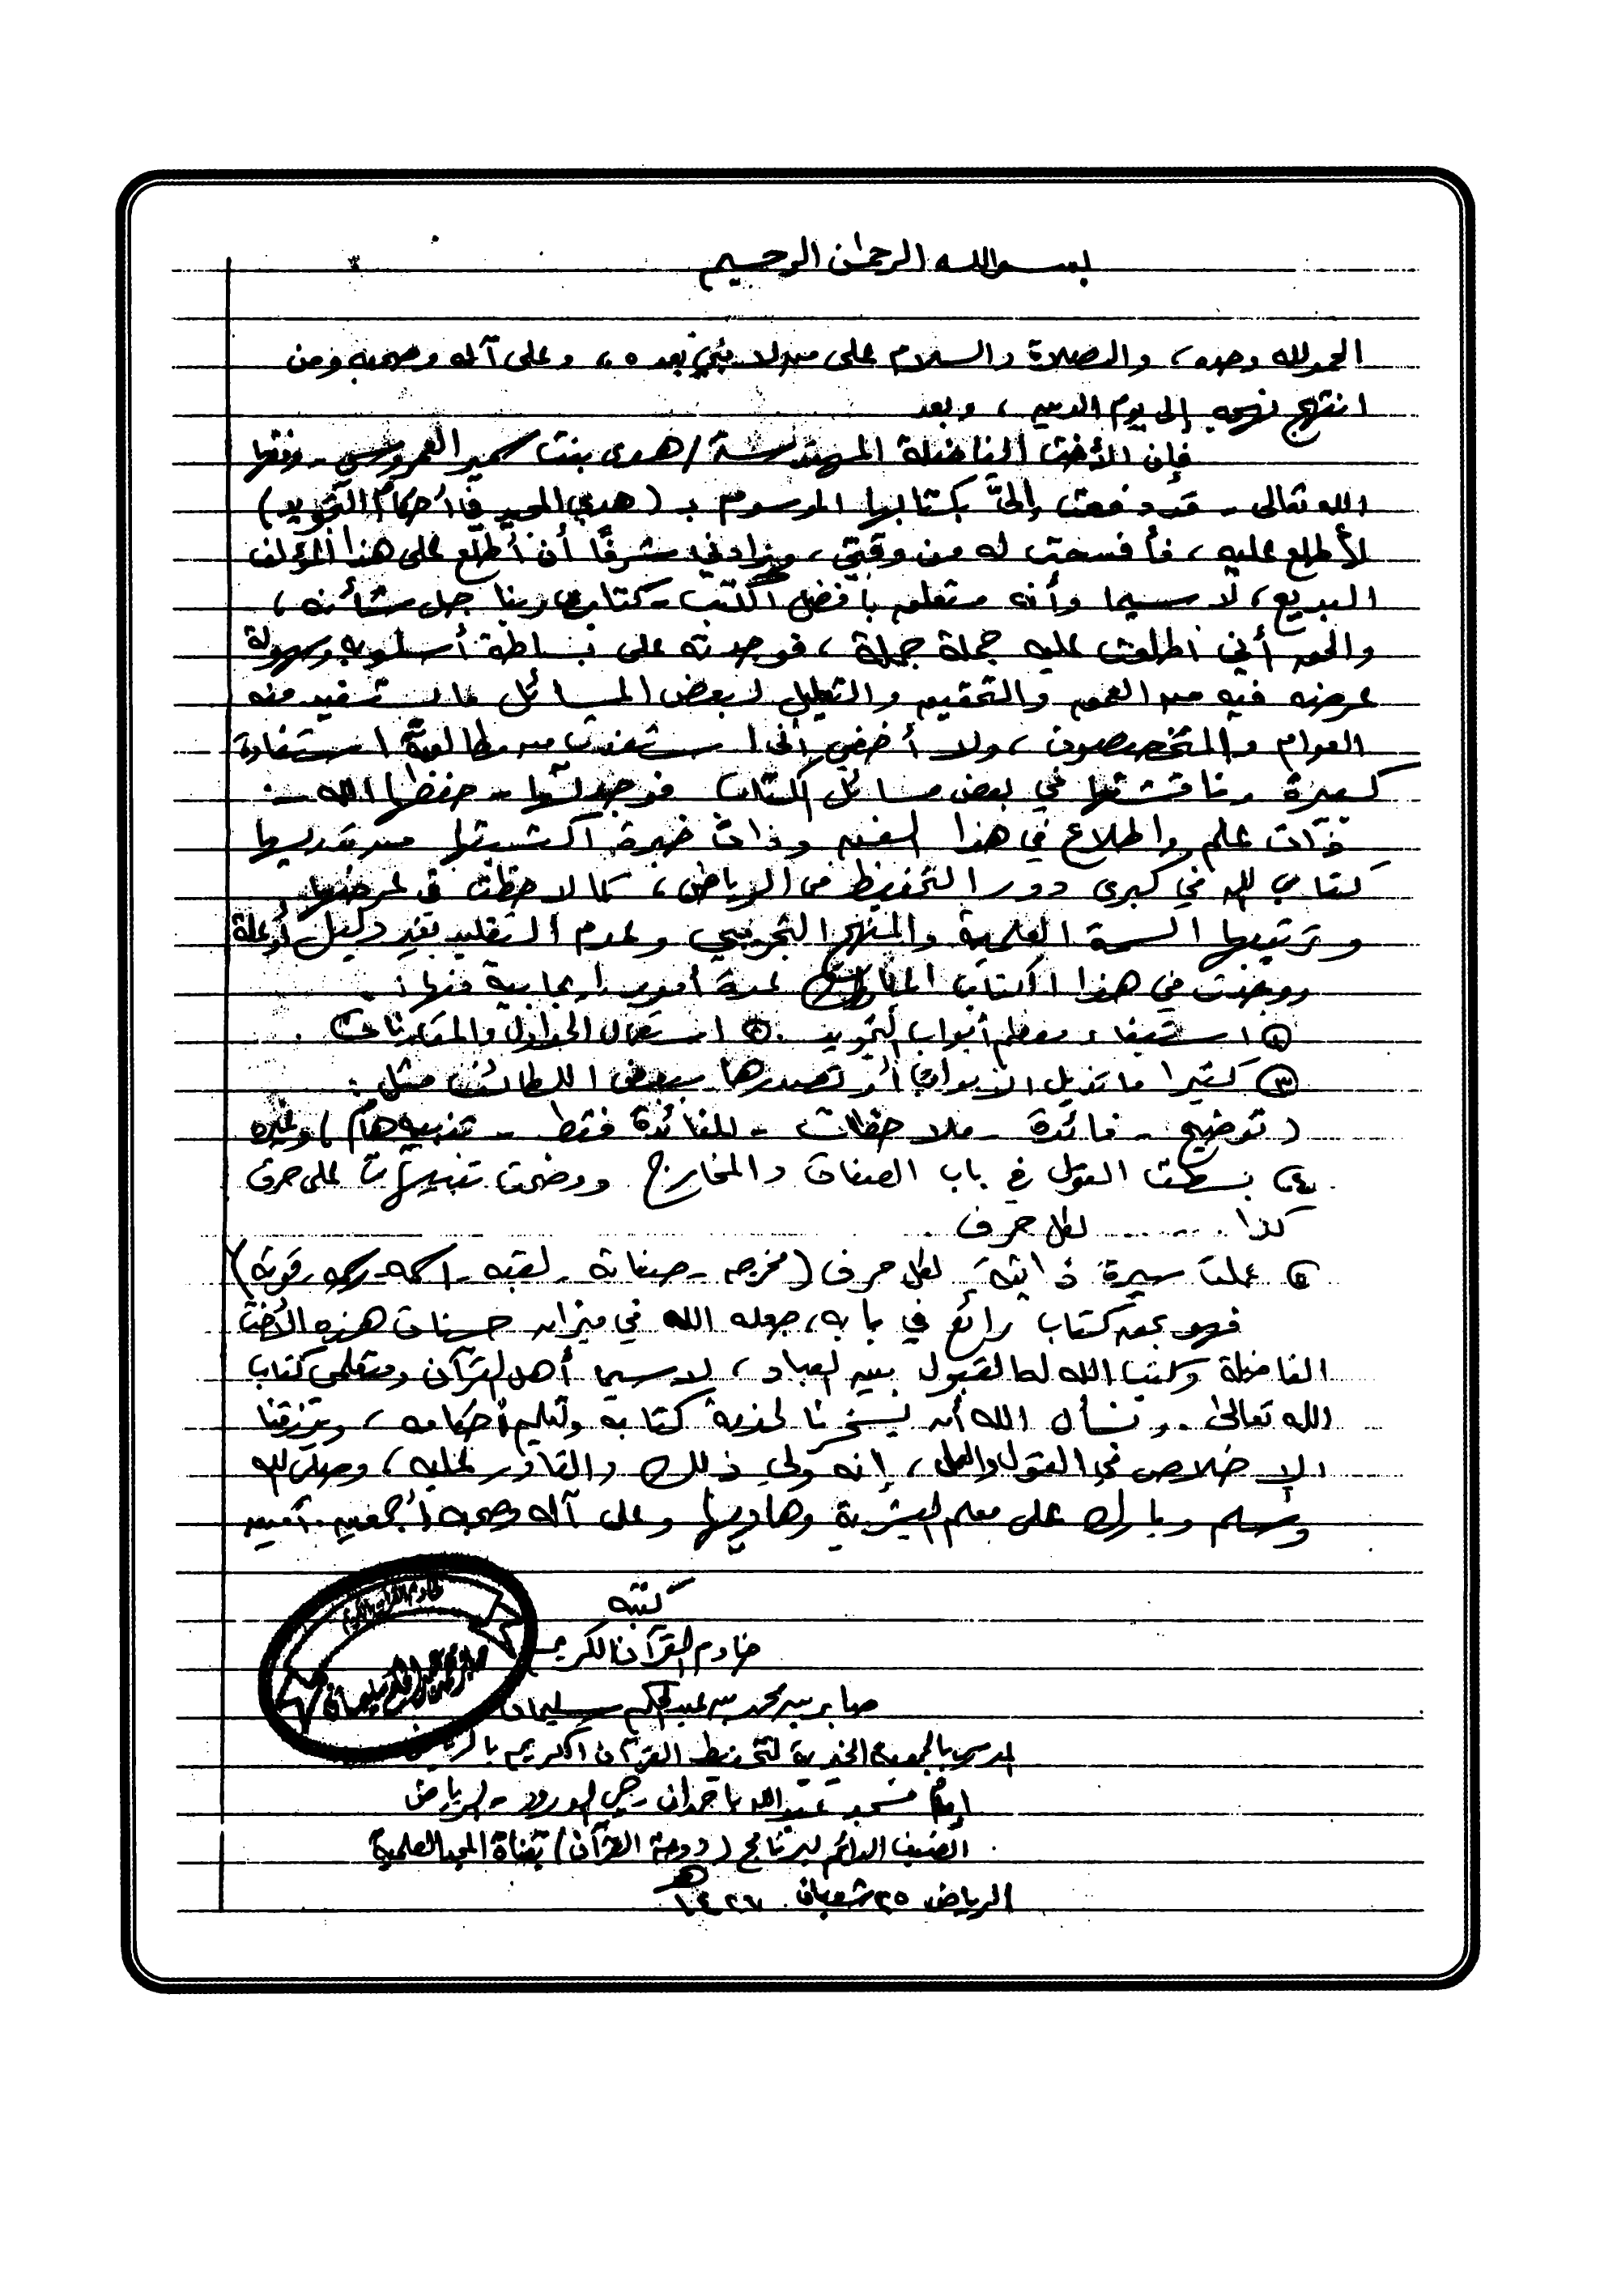 بسم الله الرحمن الرحيم
الحمد لله وحده، والصلاة والسلام على من لا نبي بعده، وعلى آله وصحبه ومن
انتهج نهجه إلى يوم الدين، وبعد
فإن الأخت الفاضلة المهندسة / هدى بنت سمير العمروسي - وفقها
الله تعالى - قد دفعت إليَّ بكتابها الموسوم بـ (هدي المجيد في أحكام التجويد)
لأطلع عليه، فأفسحت له من وقتي، وزادني شرفًا أن أطلع على هذا المؤلف
البديع، لا سيما وأنه متعلق بأفضل الكتب - كتاب ربنا جل شأنه،
والحق أني اطلعت عليه جملة جملة، فوجدته على بساطة أسلوبه وسهولة
عرضه فيه من العمق والتحقيق والتعليل لبعض المسائل ما يستفيد منه
العوام والمتخصصون، ولا أخفي أني استفدت من مطالعته استفادة
كبيرة وناقشتها في بعض مسائل الكتاب فوجدتها - حفظها الله -
ذات علم واطلاع في هذا الفن وذات خبرة اكتسبتها من تدريسها
كتاب الله في كبرى دور التحفيظ في الرياض، كما لاحظت في عرضها
وترتيبها السمة العلمية والمنهج التجريبي وعدم التقليد بغير دليل أو علة
ووجدت في هذا الكتاب المبارك عدة أمور إيجابية منها:
١ استيفاء معظم أبواب التجويد. ٢ استعمال الجداول والمقارنات.
٣ كثيرا ما تذيل الأبواب أو تصدرها ببعض اللطائف مثل:
(توضيح - فائدة - ملاحظات - للفائدة فقط - تنبيه هام) وغيره
٤ بسطت القول في باب الصفات والمخارج ووضعت تنبيهات على حرف
كذا ........ لكل حرف.
٥ عملت سيرة ذاتية لكل حرف (مخرجه - صفاته - لقبه - اسمه - رسمه - قوته)
فهو بحق كتاب رائع في بابه، جعله الله في ميزان حسنات هذه الأخت
الفاضلة وكتب الله له القبول بين العباد، لا سيما أهل القرآن ومتعلمي كتاب
الله تعالى. ونسأل الله أن يسخرنا لخدمة كتابه وتعليم أحكامه، ويرزقنا
الإخلاص في القول والعمل، إنه ولي ذلك والقادر عليه، وصلى الله
وسلم وبارك على معلم البشرية وهاديها وعلى آله وصحبه أجمعين. آمين
كتبه
خادم القرآن الكريم
صابر بن محمد بن عبد الحكم سليمان
المدرس بالجمعية الخيرية لتحفيظ القرآن الكريم بالرياض
إمام مسجد عبد الله باحمدان - حي الورود - الرياض
الضيف الدائم لبرنامج (دوحة القرآن) بقناة المجد العلمية
الرياض ٢٥ شعبان ١٤٢٧ هـ
خادم القرآن الكريم